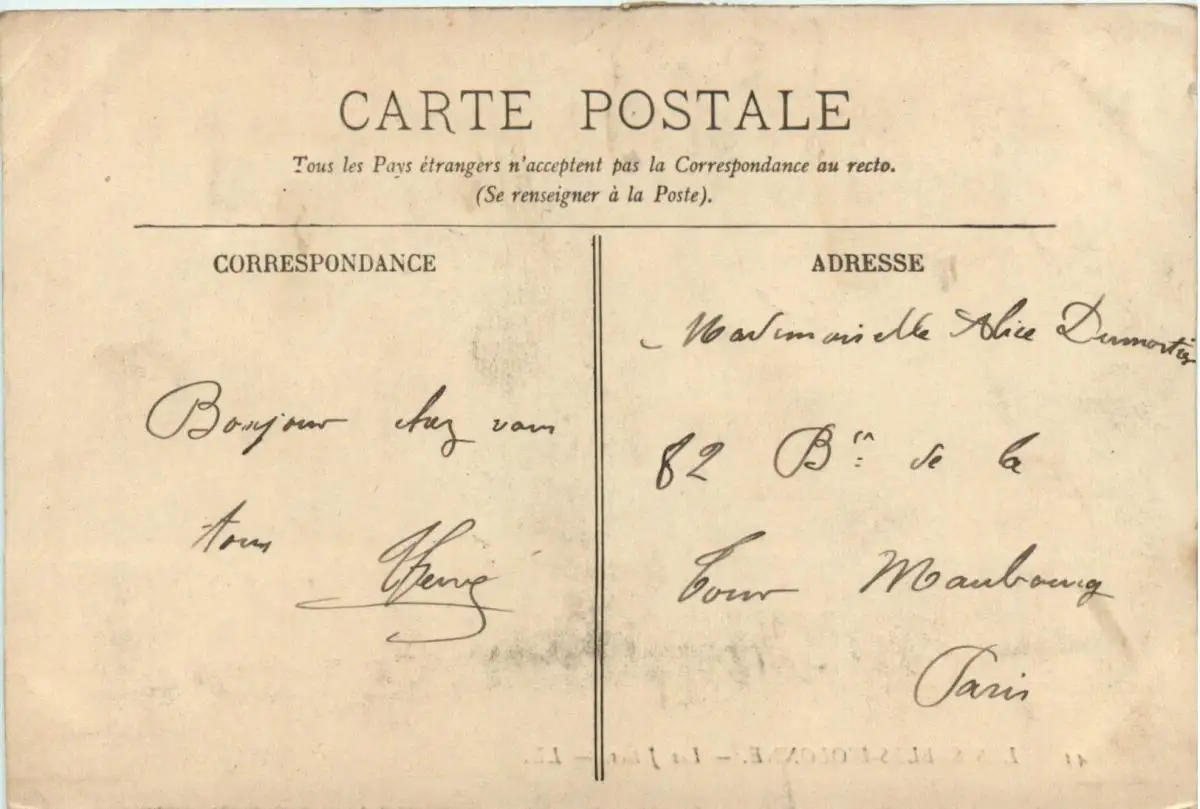 CARTE POSTALE
Tous les Pays étrangers n'acceptent pas la Correspondance au recto.
(Se renseigner à la Poste).
CORRESPONDANCE
Bonjour chez vous
tous
ADRESSE
Mademoiselle Alice Dumortier
82 B^d de la
Tour Maubourg
Paris